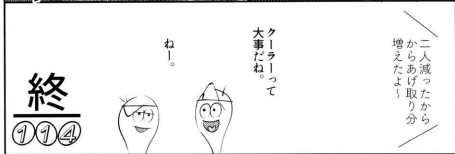 二人減ったから
からあげ取り分
増えたよ～
クーラーって
大事だね。
ねー。
終
114